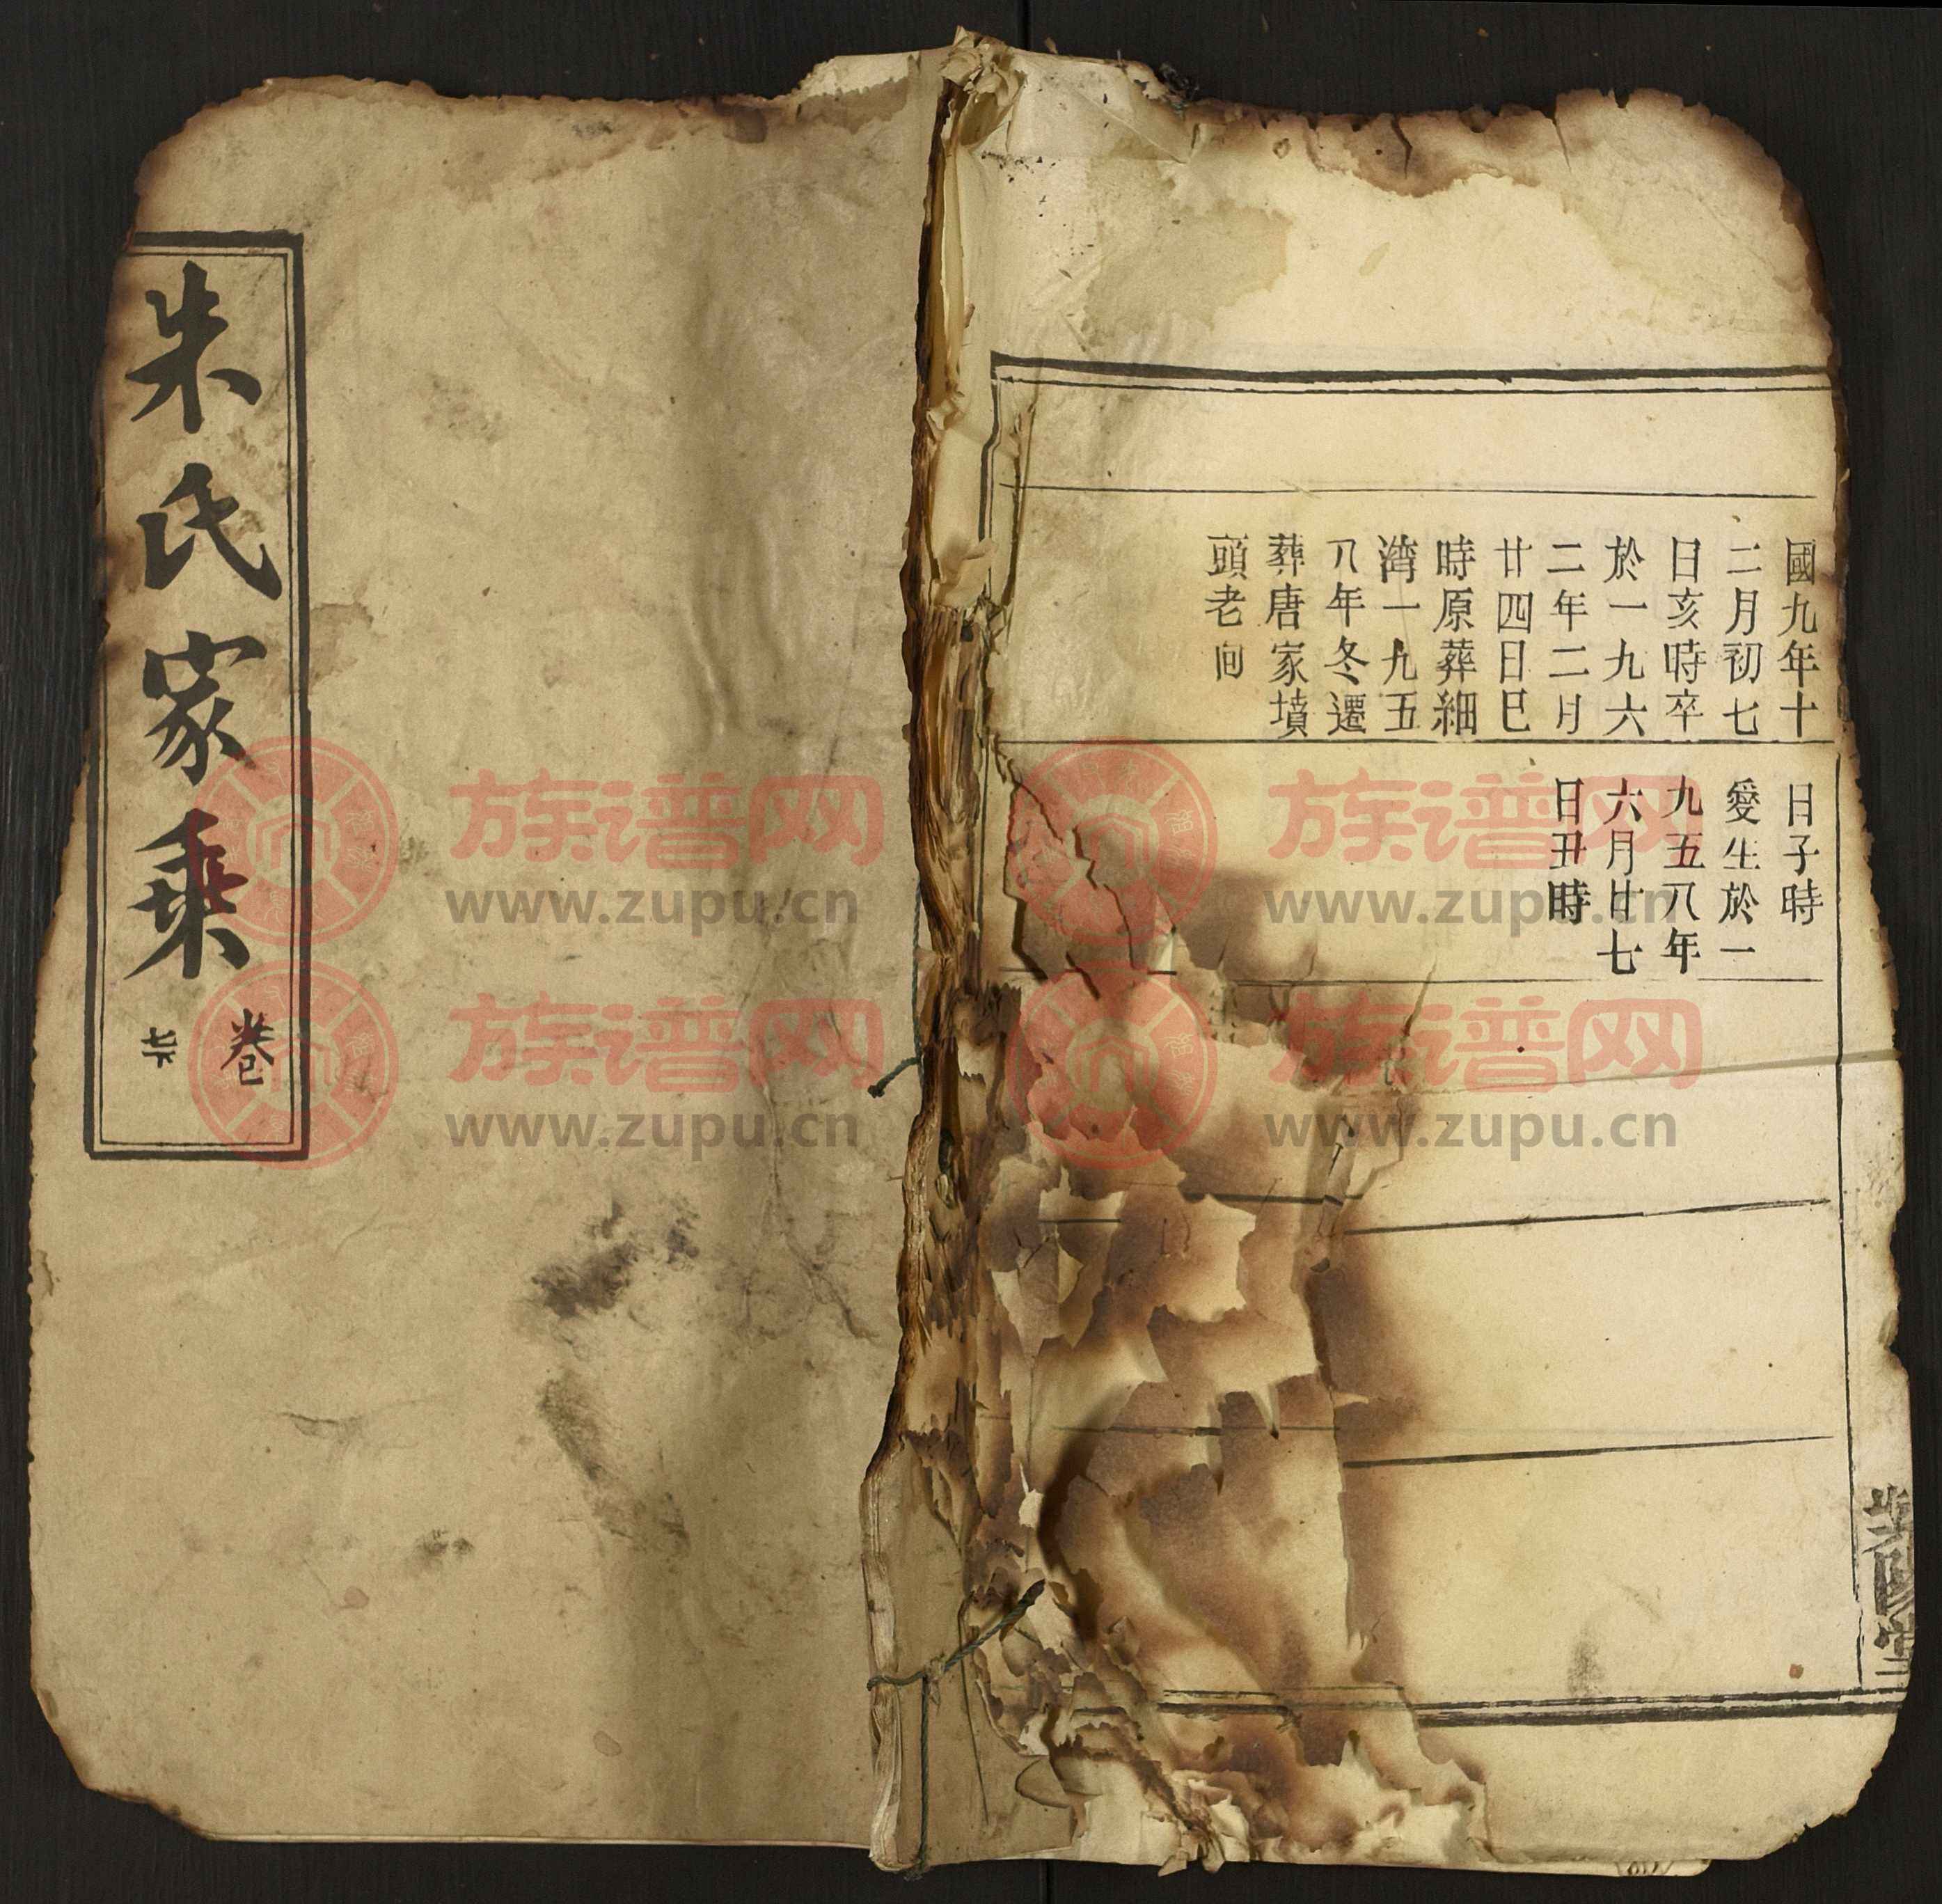 國九年十
二月初七
日亥時卒
於一九六
二年二月
廿四日巳
時原葬細
湾一九五
八年冬遷
葬唐家墳
頭老向
日子時
愛生於一
九五八年
六月廿七
日丑時
朱氏家乘
卷
族谱网
www.zupu.cn
族谱网
www.zupu.cn
族谱网
www.zupu.cn
族谱网
www.zupu.cn